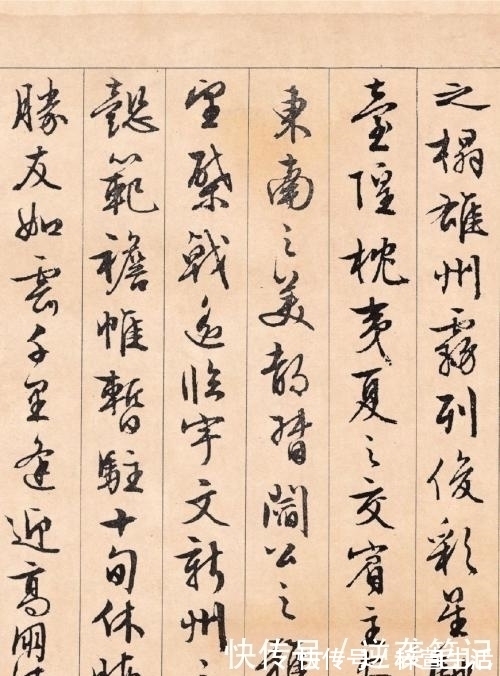 之榻雄州霧列俊彩星
臺隍枕夷夏之交賓主
東南之美都督閻公之雅
望棨戟遙臨宇文新州之
懿範襜帷暫駐十旬休暇
勝友如雲千里逢迎高朋
快传号 / 逆袭笔记
快传号 / 生活